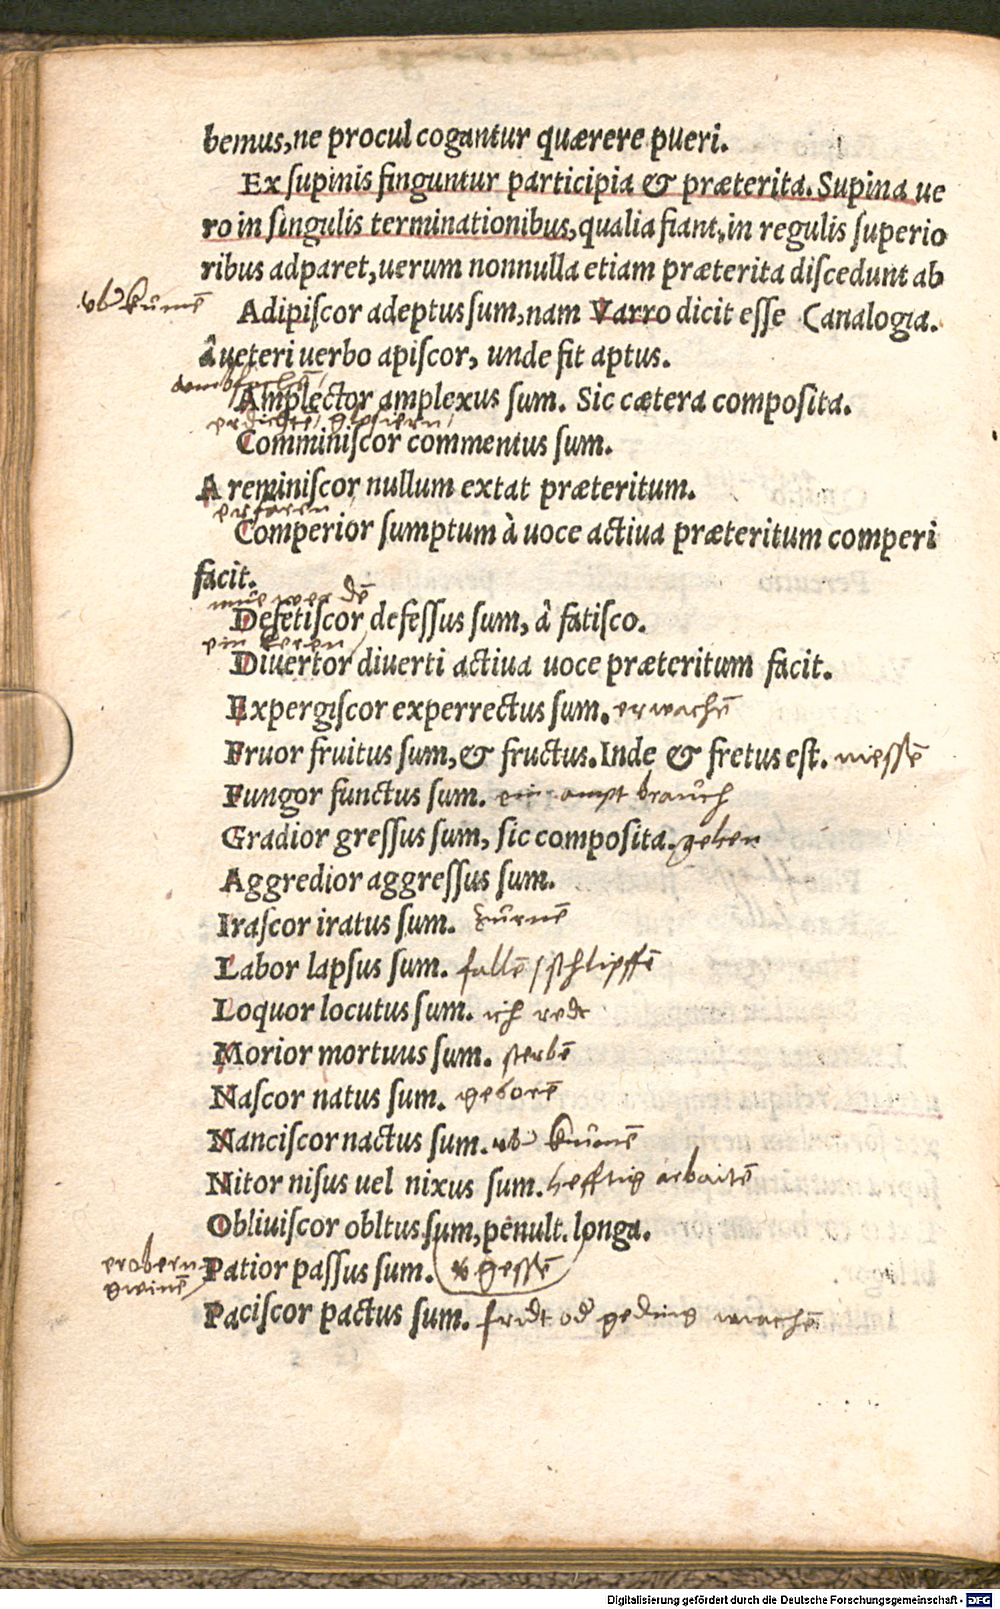 bemus, ne procul cogantur quærere pueri.
Ex ſupinis finguntur participia & præterita. Supina ue
ro in ſingulis terminationibus, qualia fiant, in regulis ſuperio
ribus adparet, uerum nonnulla etiam præterita diſcedunt ab
Adipiſcor adeptus ſum, nam Varro dicit eſſe (analogia.
â ueteri uerbo apiſcor, unde fit aptus.
Amplector amplexus ſum. Sic cætera compoſita.
Comminiſcor commentus ſum.
A reminiſcor nullum extat præteritum.
erfaren
Comperior ſumptum à uoce actiua præteritum comperi
facit.
müe werdē
Defetiſcor defeſſus ſum, â fatiſco.
ein keren
Diuertor diuerti actiua uoce præteritum facit.
Expergiſcor experrectus ſum. erwachē
Fruor fruitus ſum, & fructus. Inde & fretus eſt. nieſſē
Fungor functus ſum. ein ampt brauch
Gradior greſſus ſum, ſic compoſita. gehen
Aggredior aggreſſus ſum.
Iraſcor iratus ſum. zürnē
Labor lapſus ſum. fallē / ſchlipffē
Loquor locutus ſum. ich redt
Morior mortuus ſum. ſterbē
Naſcor natus ſum. geborē
Nanciſcor nactus ſum.
Nitor niſus uel nixus ſum. hefftig arbaitē
Obliuiſcor obltus ſum, penult. longa.
erobern
Patior paſſus ſum. geſſē
gwinē
Paciſcor pactus ſum. fridt od geding machē
Digitalisierung gefördert durch die Deutsche Forschungsgemeinschaft - DFG